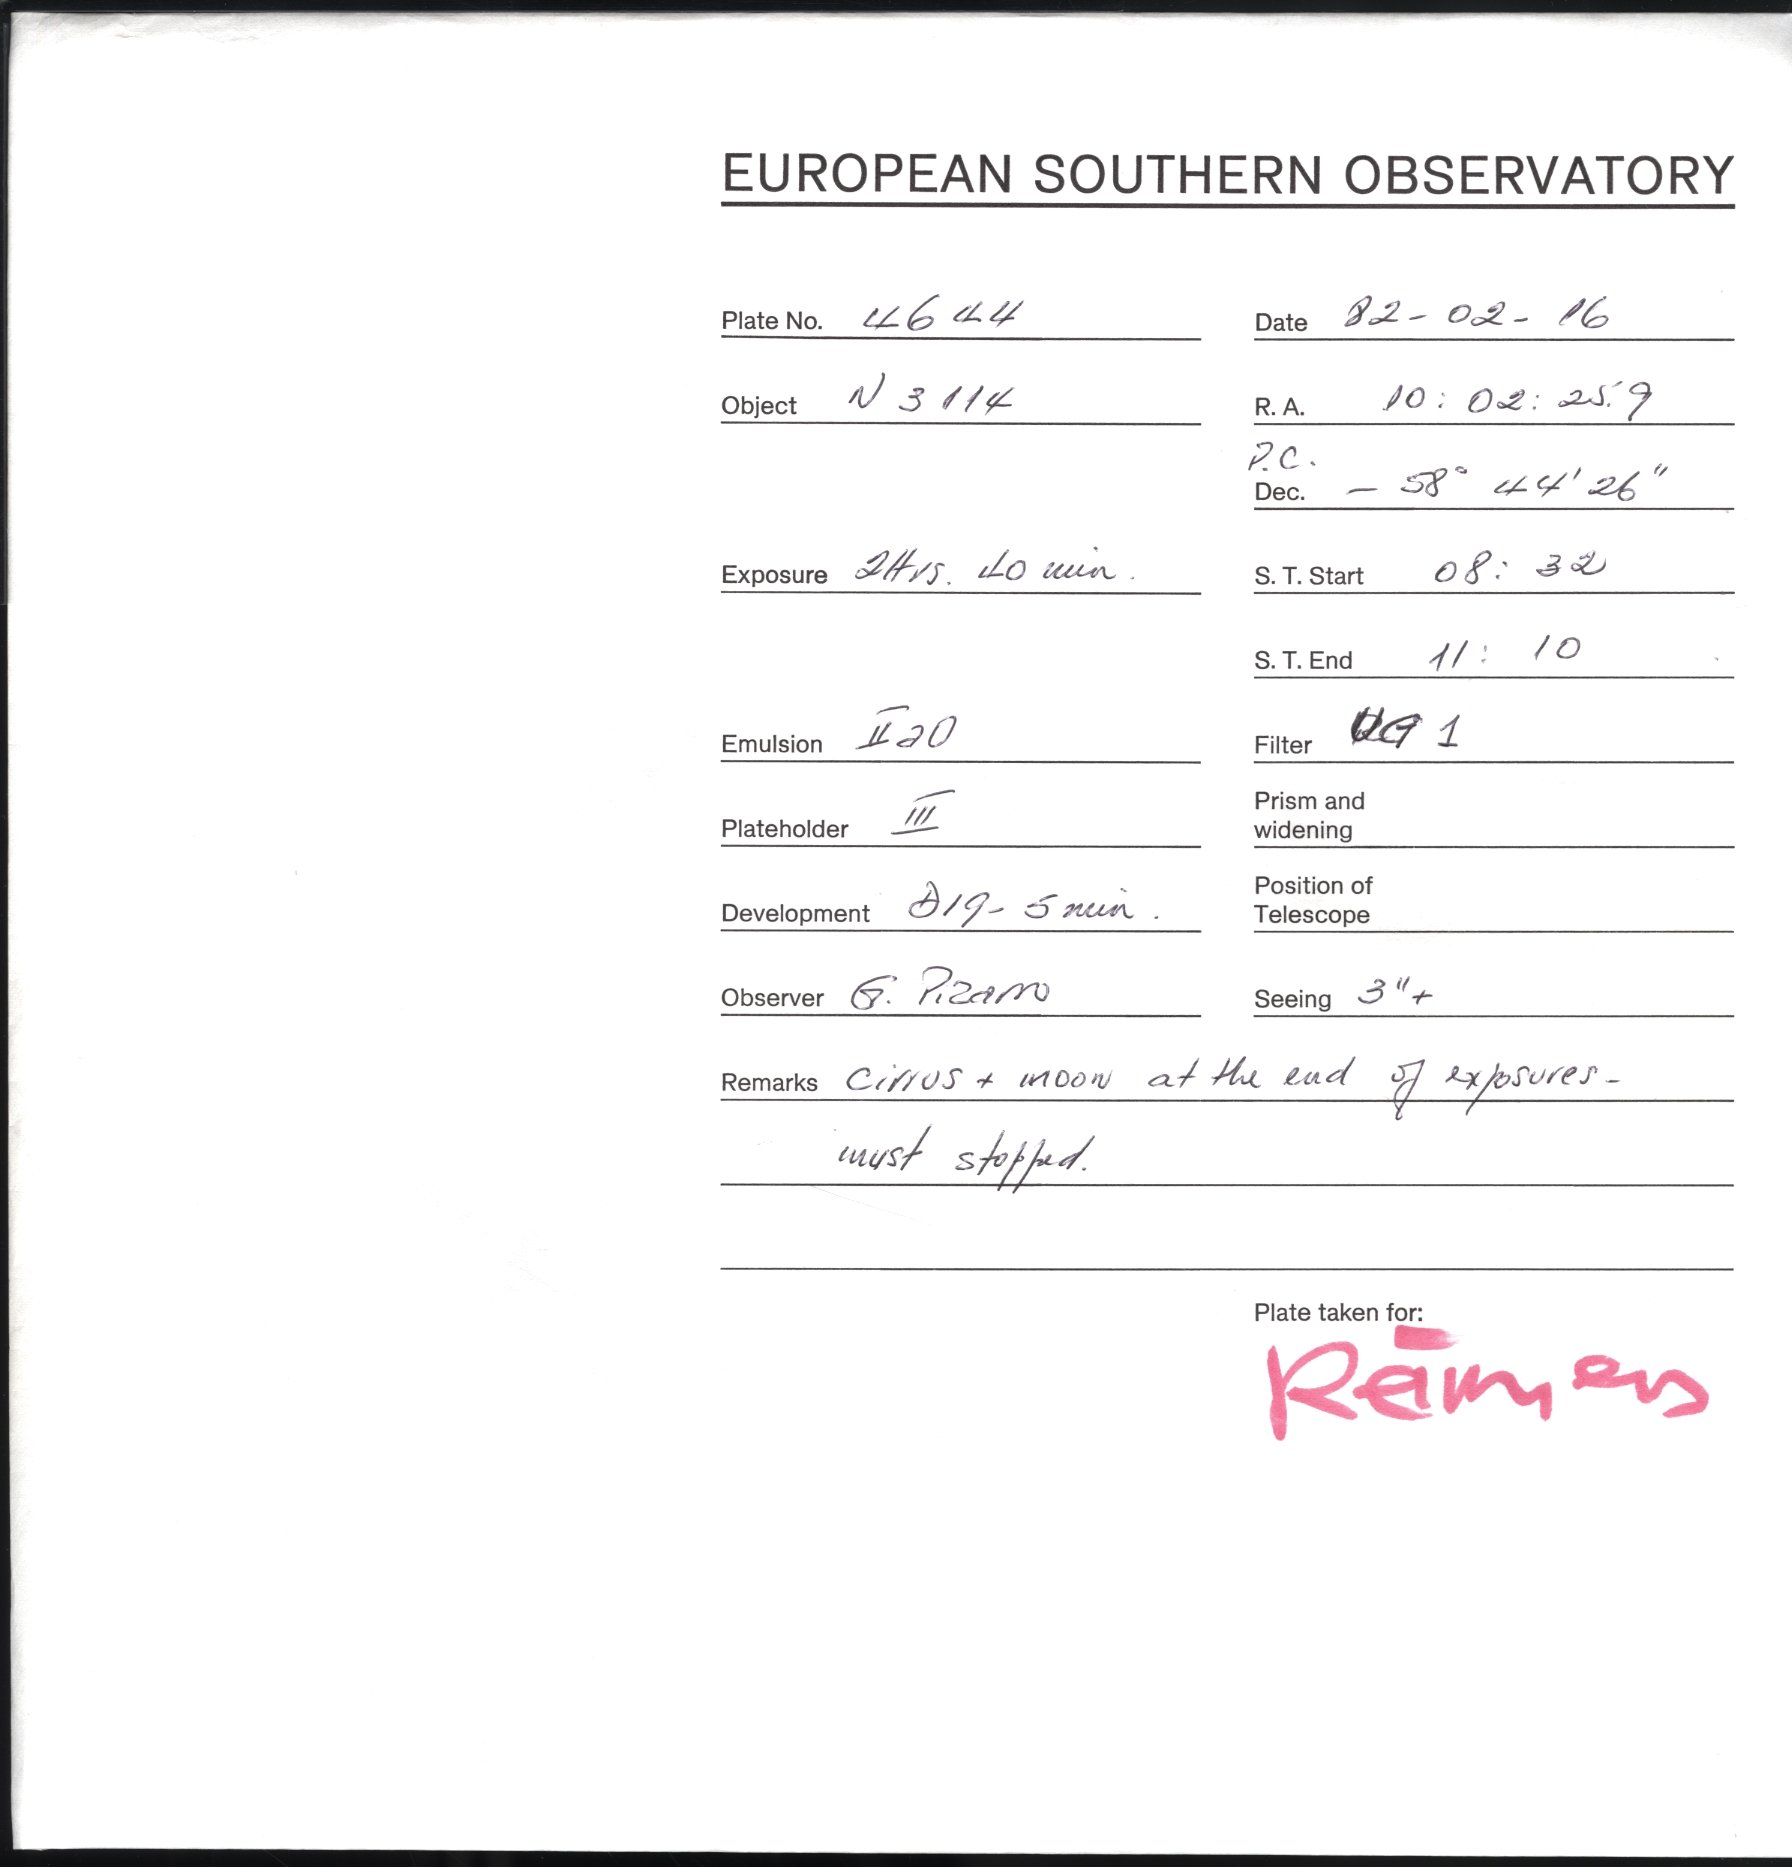 EUROPEAN SOUTHERN OBSERVATORY
Plate No. 4644 Date 82-02-16
Object N 3114 R. A. 10: 02: 25.9
P.C.
Dec. - 58° 44' 26"
Exposure 2Hrs. 40 min. S. T. Start 08: 32
S. T. End 11: 10
Emulsion II aO Filter UG 1
Plateholder III Prism and
widening
Development D19- 5 min. Position of
Telescope
Observer G. Pizarro Seeing 3"+
Remarks cirrus + moon at the end of exposures-
must stopped.
Plate taken for: